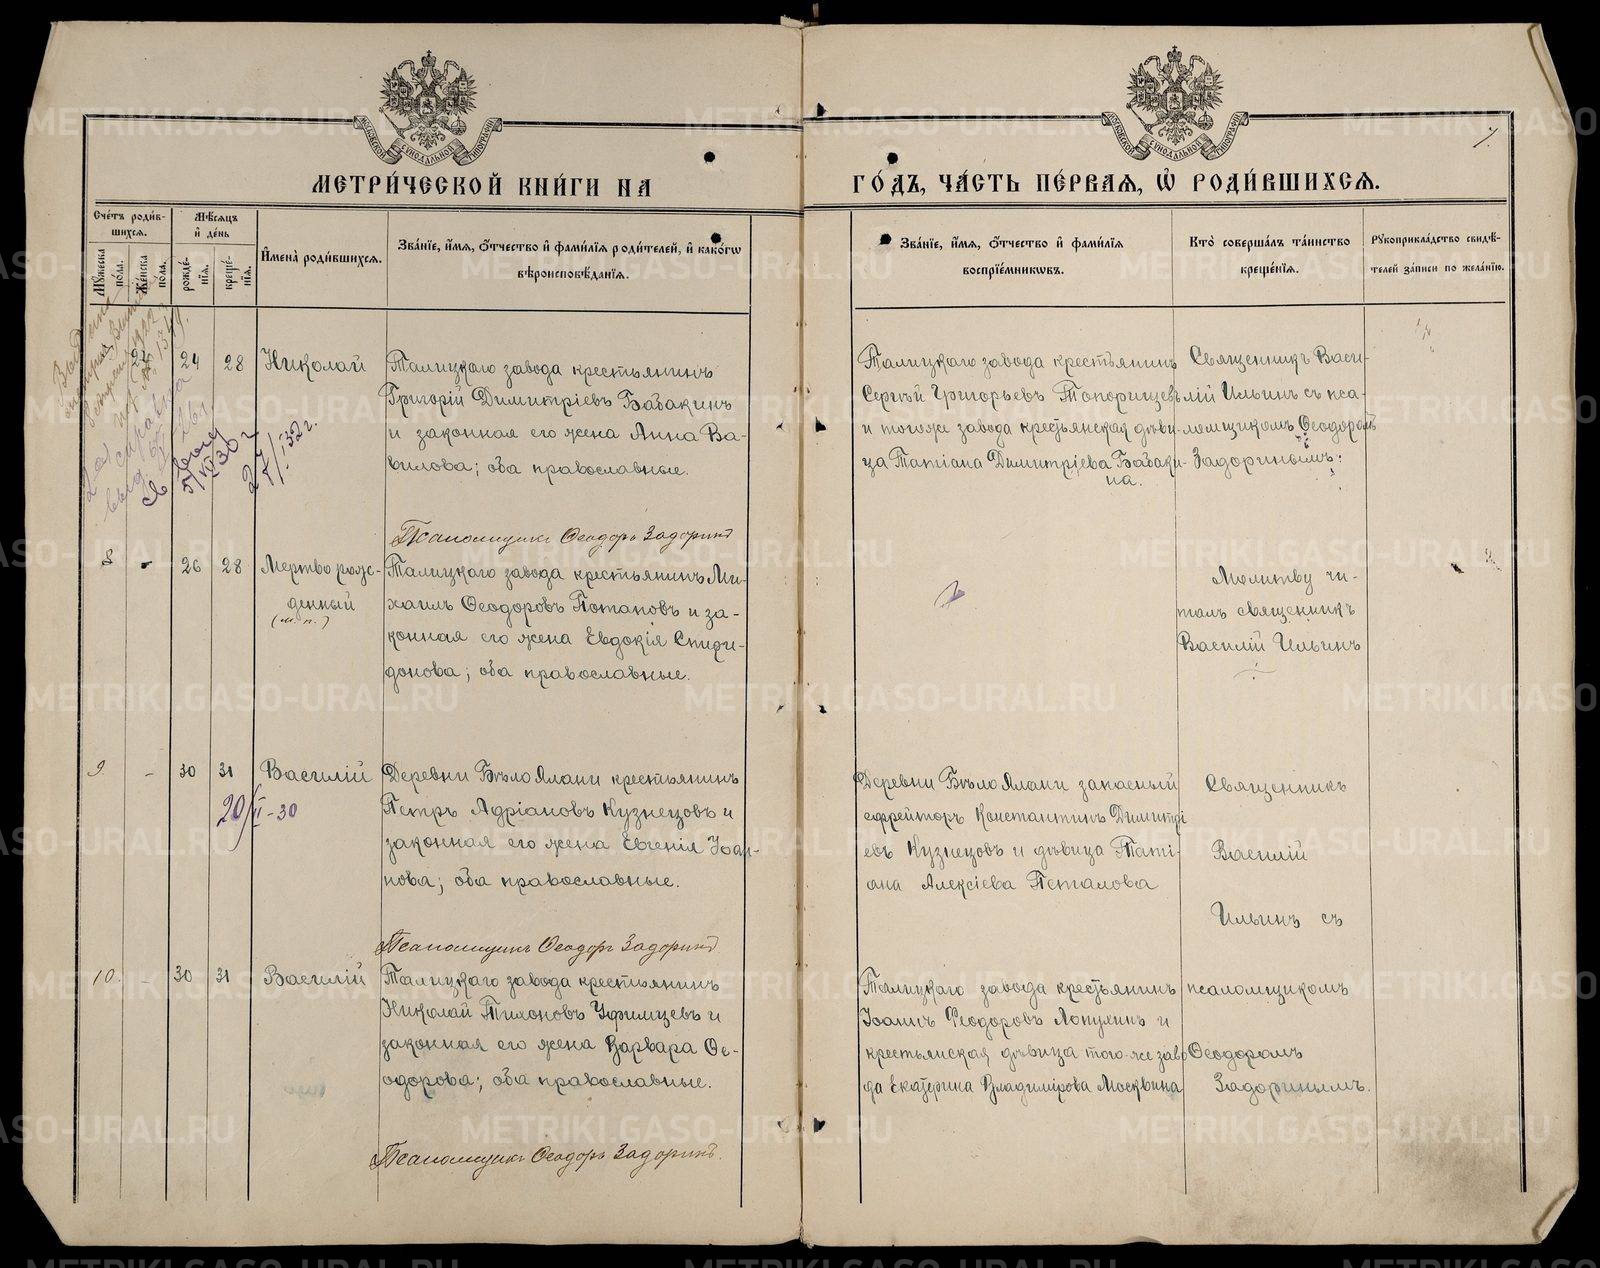 МЕТРИ́ЧЕСКОЙ КНИ́ГИ НА
ГО́ДЪ, ЧА́СТЬ ПЕ́РВАЯ, Ѡ҆ РОДИ́ВШИХСЯ.
Сче́тъ роди́в-
шихся.
Мѣ́сяцъ
и҆ де́нь
Мꙋ́жеска
по́ла.
Же́нска
по́ла.
рожде́-
нїя.
креще́-
нїя.
И҆мена̀ роди́вшихся.
Зва́нїе, и҆́мя, ѻ҆́тчество и҆ фами́лїя роди́телей, и҆ како́гѡ
вѣроисповѣ́данїя.
Зва́нїе, и҆́мя, ѻ҆́тчество и҆ фами́лїя
воспрїе́мникѡвъ.
Кто̀ соверша́лъ та́инство
креще́нїя.
Рꙋкоприкла́дство свидѣ́-
телей за́писи по жела́нїю.
24 28 Николай
Талицкаго завода крестьянинъ
Григорій Димитріевъ Бабакинъ
и законная его жена Анна Ва-
вилова; оба православные.
Псаломщикъ Ѳеодоръ Задоринъ
Талицкаго завода крестьянинъ
Сергѣй Григорьевъ Топорищевъ
и тогоже завода крестьянская дѣви-
ца Татіана Димитріева Бабаки-
на.
Священникъ Васи-
лій Ильинъ съ пса-
ломщикомъ Ѳеодоромъ
Задоринымъ.
8 - 26 28 Мертворож-
денный
(м. п.)
Талицкаго завода крестьянинъ Ми-
хаилъ Ѳеодоровъ Потаповъ и за-
конная его жена Евдокія Спири-
донова; оба православные.
Молитву чи-
талъ священникъ
Василій Ильинъ
9. - 30 31 Василій
20/II-30
Деревни Бѣло Ялани крестьянинъ
Петръ Адріановъ Кузнецовъ и
законная его жена Евгенія Іоан-
нова; оба православные.
Псаломщикъ Ѳеодоръ Задоринъ
Деревни Бѣло Ялани запасный
ефрейторъ Константинъ Димитрі
евъ Кузнецовъ и дѣвица Таті-
ана Алексіева Петалова
Священникъ
Василій
Ильинъ съ
10. - 30 31 Василій
Талицкаго завода крестьянинъ
Николай Тихоновъ Уфимцевъ и
законная его жена Варвара Ѳе-
одорова; оба православные.
Псаломщикъ Ѳеодоръ Задоринъ.
Талицкаго завода крестьянинъ
Іоаннъ Ѳеодоровъ Лопухинъ и
крестьянская дѣвица того-же заво
да Екатерина Владимірова Москвина
псаломщикомъ
Ѳеодоромъ
Задоринымъ.
METRIKI.GASO-URAL.RU